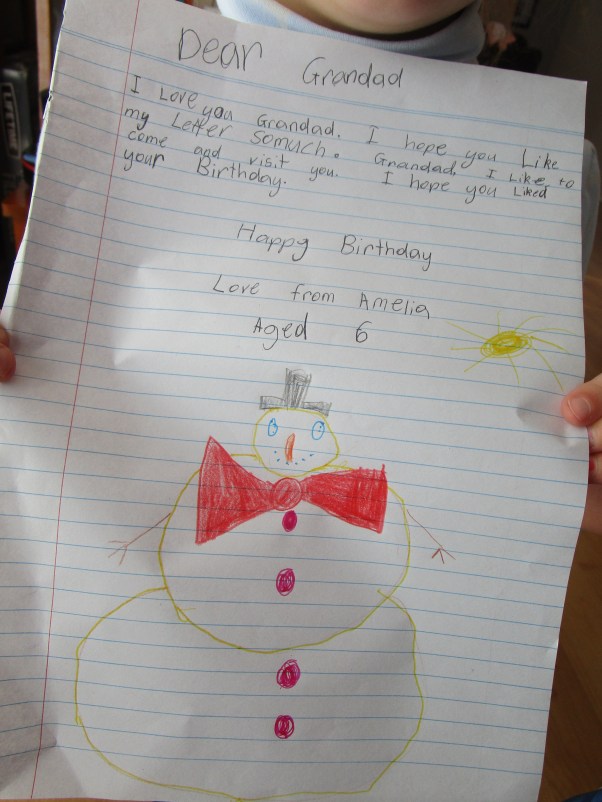 Dear Grandad
I Love you Grandad. I hope you Like
my Letter somuch. Grandad. I Like to
come and visit you. I hope you Liked
your Birthday.
Happy Birthday
Love from Amelia
Aged 6